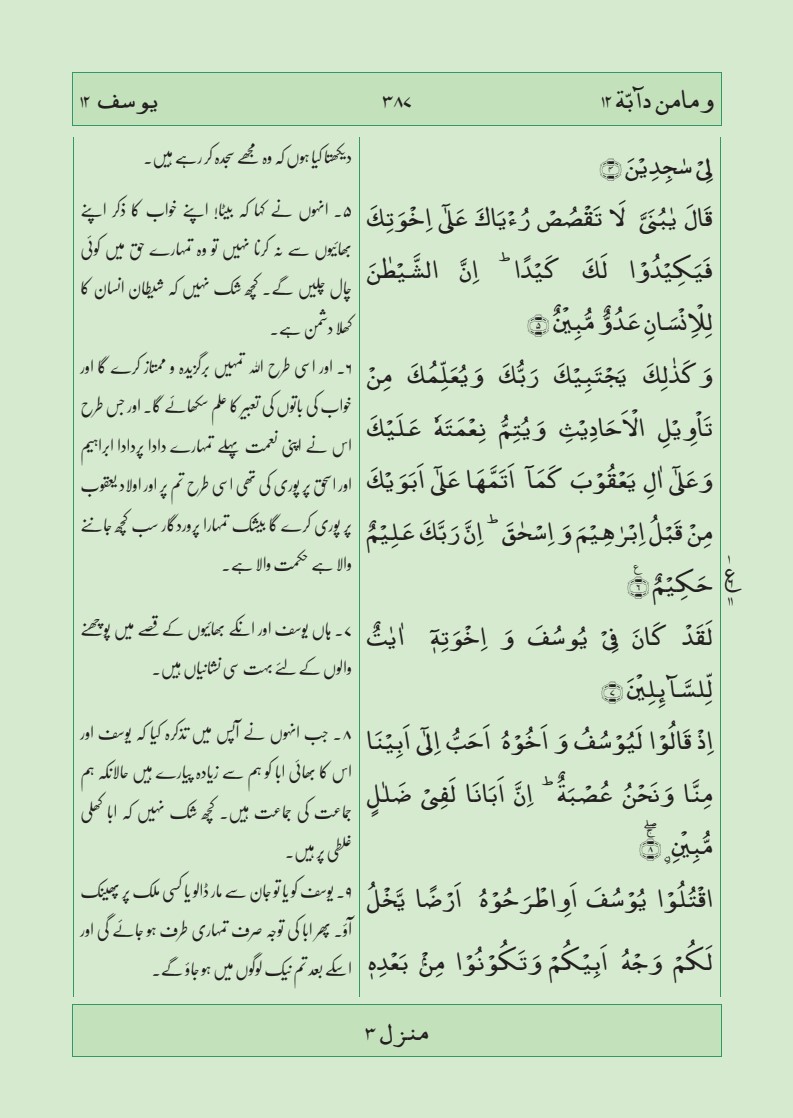 و مامن دآبّة ۱۲
۳۸۷
یوسف ۱۲
لِیۡ سٰجِدِیۡنَ ﴿۴﴾
قَالَ یٰبُنَیَّ لَا تَقۡصُصۡ رُءۡیَاكَ عَلٰۤی اِخۡوَتِكَ
فَیَكِیۡدُوۡا لَكَ كَیۡدًا ؕ اِنَّ الشَّیۡطٰنَ
لِلۡاِنۡسَانِ عَدُوٌّ مُّبِیۡنٌ ﴿۵﴾
وَ كَذٰلِكَ یَجۡتَبِیۡكَ رَبُّكَ وَ یُعَلِّمُكَ مِنۡ
تَاۡوِیۡلِ الۡاَحَادِیۡثِ وَ یُتِمُّ نِعۡمَتَهٗ عَلَیۡكَ
وَ عَلٰۤی اٰلِ یَعۡقُوۡبَ كَمَاۤ اَتَمَّهَا عَلٰۤی اَبَوَیۡكَ
مِنۡ قَبۡلُ اِبۡرٰهِیۡمَ وَ اِسۡحٰقَ ؕ اِنَّ رَبَّكَ عَلِیۡمٌ
حَكِیۡمٌ ﴿۶﴾
لَقَدۡ كَانَ فِیۡ یُوۡسُفَ وَ اِخۡوَتِهٖۤ اٰیٰتٌ
لِّلسَّآئِلِیۡنَ ﴿۷﴾
اِذۡ قَالُوۡا لَیُوۡسُفُ وَ اَخُوۡهُ اَحَبُّ اِلٰۤی اَبِیۡنَا
مِنَّا وَ نَحۡنُ عُصۡبَةٌ ؕ اِنَّ اَبَانَا لَفِیۡ ضَلٰلٍ
مُّبِیۡنِ ﴿۸﴾
اقۡتُلُوۡا یُوۡسُفَ اَوِ اطۡرَحُوۡهُ اَرۡضًا یَّخۡلُ
لَكُمۡ وَجۡهُ اَبِیۡكُمۡ وَ تَكُوۡنُوۡا مِنۡۢ بَعۡدِهٖ
دیکھتا کیا ہوں کہ وہ مجھے سجدہ کر رہے ہیں۔
۵۔ انہوں نے کہا کہ بیٹا! اپنے خواب کا ذکر اپنے
بھائیوں سے نہ کرنا نہیں تو وہ تمہارے حق میں کوئی
چال چلیں گے۔ کچھ شک نہیں کہ شیطان انسان کا
کھلا دشمن ہے۔
۶۔ اور اسی طرح اللہ تمہیں برگزیدہ و ممتاز کرے گا اور
خواب کی باتوں کی تعبیر کا علم سکھائے گا۔ اور جس طرح
اس نے اپنی نعمت پہلے تمہارے دادا پردادا ابراہیم
اور اسحٰق پر پوری کی تھی اسی طرح تم پر اور اولاد یعقوب
پر پوری کرے گا بیشک تمہارا پروردگار سب کچھ جاننے
والا ہے حکمت والا ہے۔
۷۔ ہاں یوسف اور انکے بھائیوں کے قصے میں پوچھنے
والوں کے لئے بہت سی نشانیاں ہیں۔
۸۔ جب انہوں نے آپس میں تذکرہ کیا کہ یوسف اور
اس کا بھائی ابا کو ہم سے زیادہ پیارے ہیں حالانکہ ہم
جماعت کی جماعت ہیں۔ کچھ شک نہیں کہ ابا کھلی
غلطی پر ہیں۔
۹۔ یوسف کو یا تو جان سے مار ڈالو یا کسی ملک پر پھینک
آؤ۔ پھر ابا کی توجہ صرف تمہاری طرف ہو جائے گی اور
اسکے بعد تم نیک لوگوں میں ہو جاؤ گے۔
منزل ۳